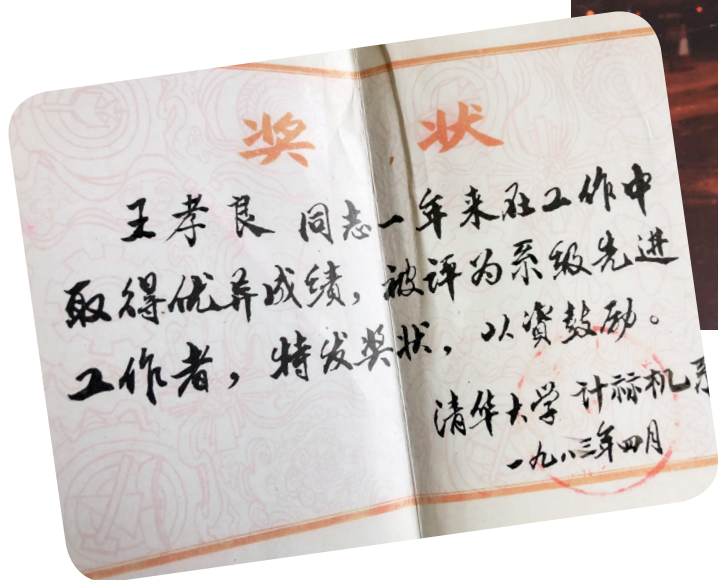 奖状
王孝良 同志一年来在工作中
取得优异成绩，被评为系级先进
工作者，特发奖状，以资鼓励。
清华大学 计标机系
一九八三年四月